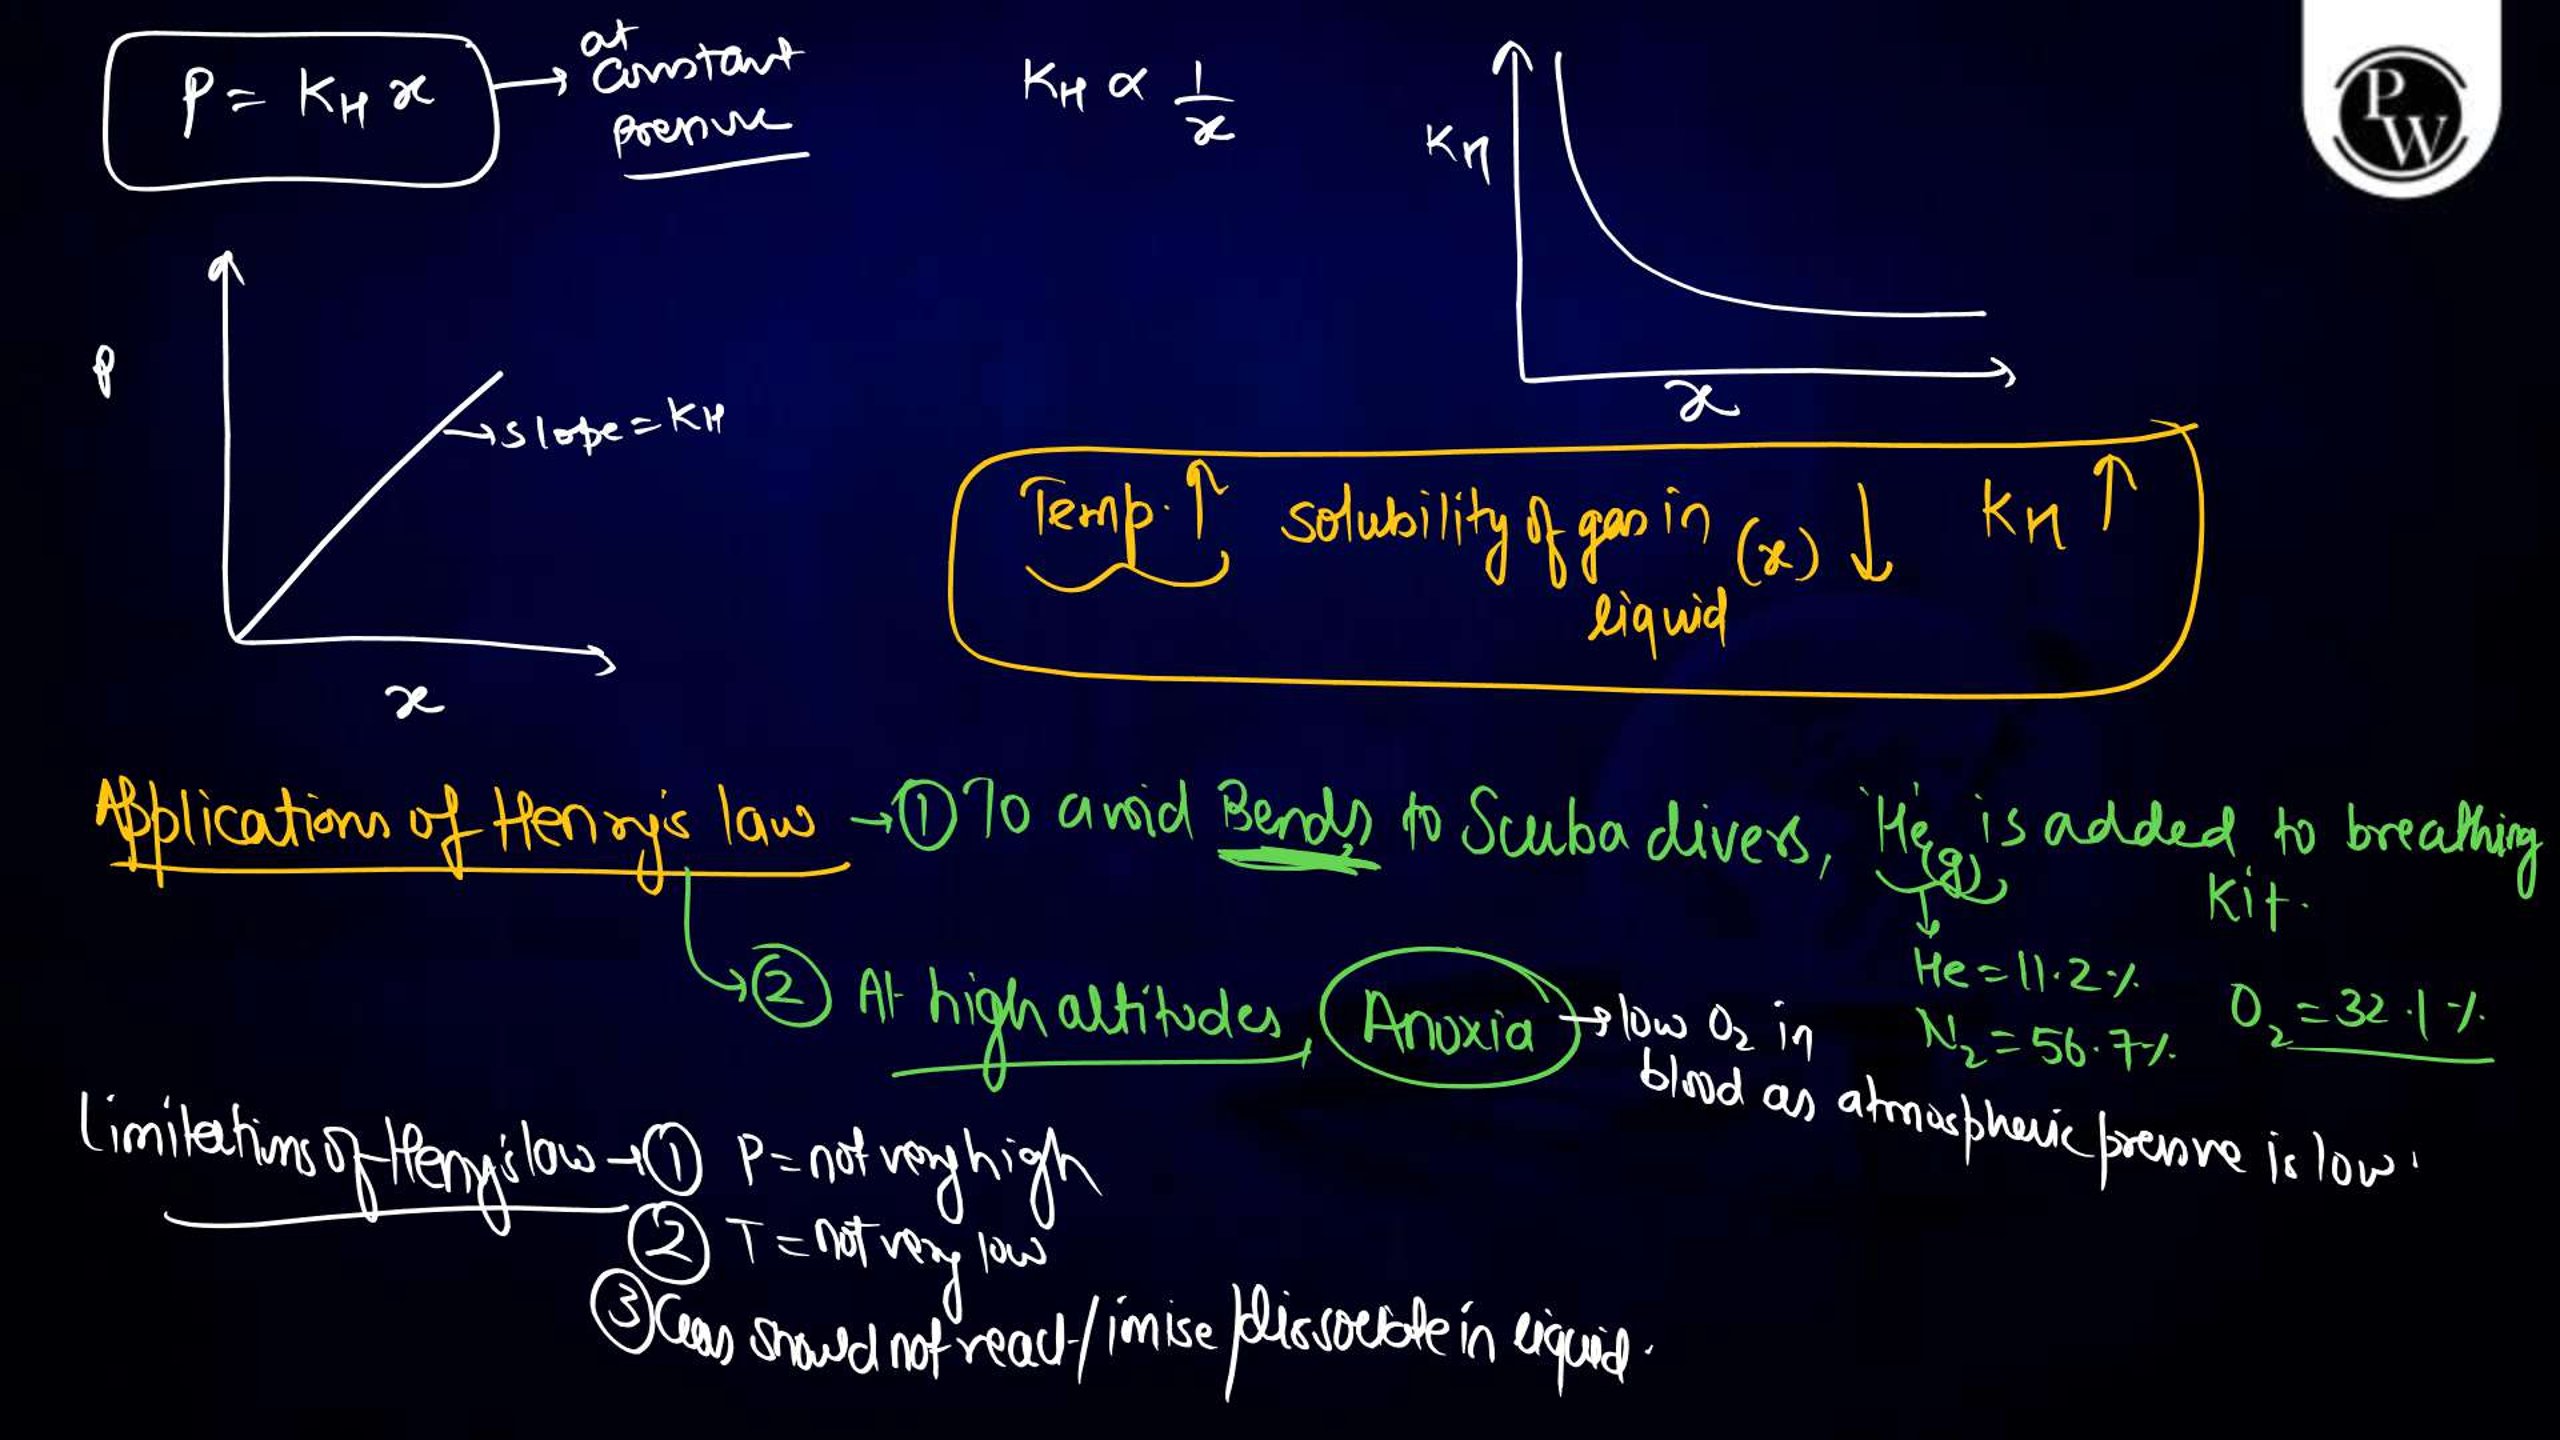 P = KH x → at constant pressure
KH ∝ 1/x
KH
x
PW
P
slope = KH
x
Temp. ↑ solubility of gas in liquid (x) ↓ KH ↑
Applications of Henry's law → ① To avoid Bends to Scuba divers, 'He'(g) is added to breathing Kit.
He = 11.2%
N2 = 56.7%
O2 = 32.1%
② At high altitudes, Anoxia → low O2 in blood as atmospheric pressure is low.
Limitations of Henry's law → ① P = not very high
② T = not very low
③ Gas should not react/ionise/dissociate in liquid.